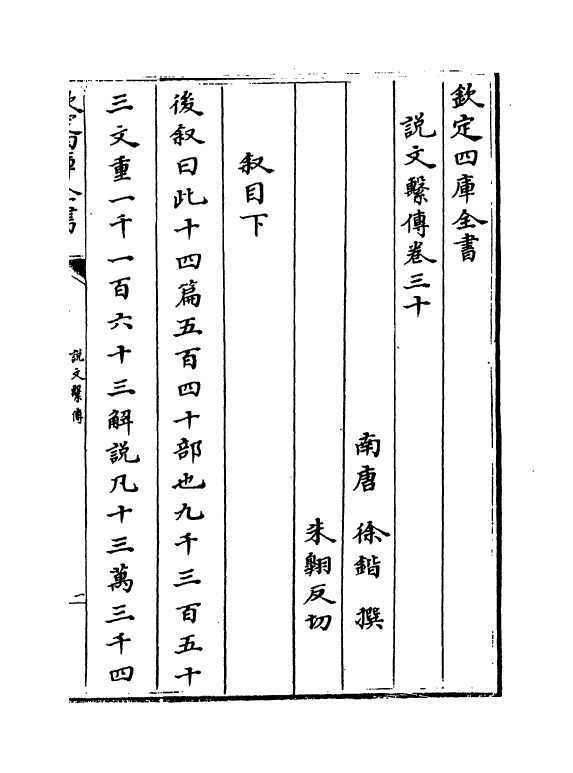 欽定四庫全書
説文繫傳卷三十
南唐　徐鍇　撰
朱翺反切
叙目下
後叙曰此十四篇五百四十部也九千三百五十
三文重一千一百六十三解説凡十三萬三千四
欽定四庫全書
説文繫傳
一